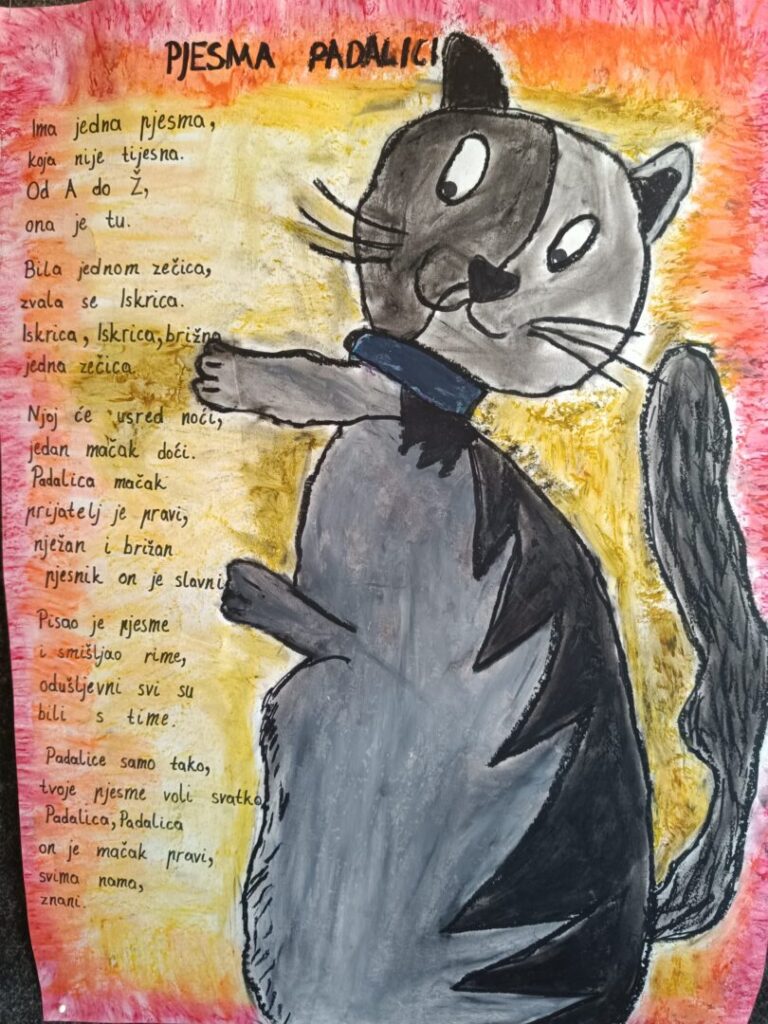 PJESMA PADALICI
Ima jedna pjesma,
koja nije tijesna.
Od A do Ž,
ona je tu.
Bila jednom zečica,
zvala se Iskrica.
Iskrica, Iskrica, brižna
jedna zečica.
Njoj će usred noći,
jedan mačak doći.
Padalica mačak
prijatelj je pravi,
nježan i brižan
pjesnik on je slavni
Pisao je pjesme
i smišljao rime,
odušljevni svi su
bili s time.
Padalice samo tako,
tvoje pjesme voli svatko
Padalica, Padalica
on je mačak pravi,
svima nama,
znani.